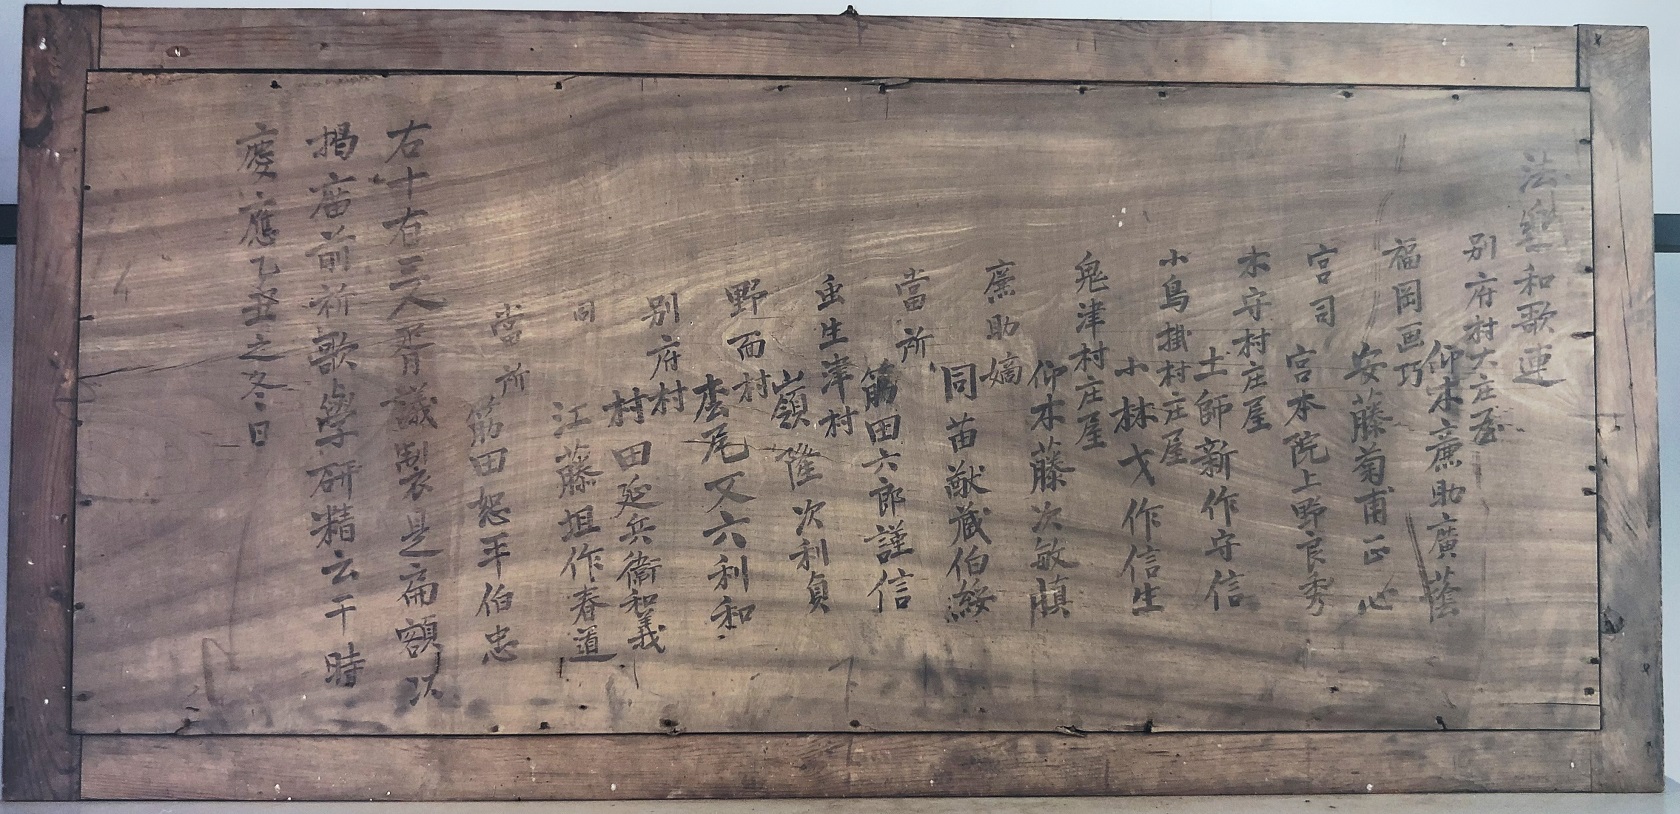 法樂和歌連
別府村大庄屋
仰木廉助廣蔭
福岡画巧
安藤菊甫正心
宮司
宮本院上野良秀
木守村庄屋
土師新作守信
小鳥掛村庄屋
小林戈作信生
鬼津村庄屋
仰木藤次敏慎
廉助嫡
同苗猷蔵伯綏
當所
筋田六郎謹信
垂生津村
嶺隆次利貞
野面村
松尾又六利和
別府村
村田延兵衞和義
同
江藤坦作春道
當所
筋田恕平伯忠
右十有三人胥議製是扁額以
掲廟前祈歌學研精云干時
慶應乙丑之冬日